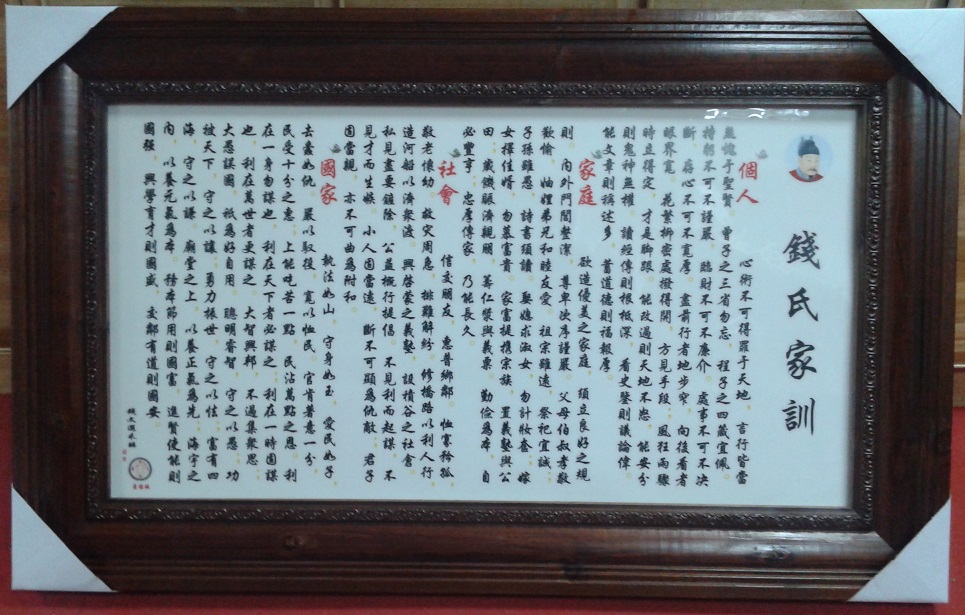 錢氏家訓
個人
心術不可得罪于天地。言行皆當
無愧于聖賢。曾子之三省勿忘。程子之四箴宜佩。
持躬不可不謹嚴。臨財不可不廉介。處事不可不决
斷。存心不可不寬厚。盡前行者地步窄。向後看者
眼界寬。花繁柳密處撥得開。方見手段。風狂雨驟
時立得定。才是脚跟。能改過則天地不怒。能安分
則鬼神無權。讀經傳則根柢深。看史鑒則議論偉。
能文章則稱述多。蓄道德則福報厚。
家庭
欲造優美之家庭。須立良好之規
則。內外門閭整潔。尊卑次序謹嚴。父母伯叔孝敬
歡愉。妯娌弟兄和睦友愛。祖宗雖遠。祭祀宜誠。
子孫雖愚。詩書須讀。娶媳求淑女。勿計妝奩。嫁
女擇佳婿。勿慕富貴。家富提攜宗族。置義塾與公
田。歲饑賑濟親朋。籌仁漿與義粟。勤儉為本。自
必豐亨。忠厚傳家。乃能長久。
社會
信交朋友。惠普鄉鄰。恤寡矜孤。
敬老懷幼。救灾周急。排難解紛。修橋路以利人行。
造河船以濟衆渡。興啓蒙之義塾。設積谷之社會。
私見盡要鏟除。公益概行提倡。不見利而起謀。不
見才而生嫉。小人固當遠。斷不可顯為仇敵。君子
固當親。亦不可曲為附和。
國家
執法如山。守身如玉。愛民如子。
去蠹如仇。嚴以馭役。寬以恤民。官肯著意一分。
民受十分之惠。上能吃苦一點。民沾萬點之恩。利
在一身勿謀也。利在天下者必謀之。利在一時固謀
也。利在萬世者更謀之。大智興邦。不過集衆思。
大愚誤國。祇為好自用。聰明睿智。守之以愚。功
被天下。守之以讓。勇力振世。守之以怯。富有四
海。守之以謙。廟堂之上。以養正氣為先。海宇之
內。以養元氣為本。務本節用則國富。進賢使能則
國强。興學育才則國盛。交鄰有道則國安。
錢文選